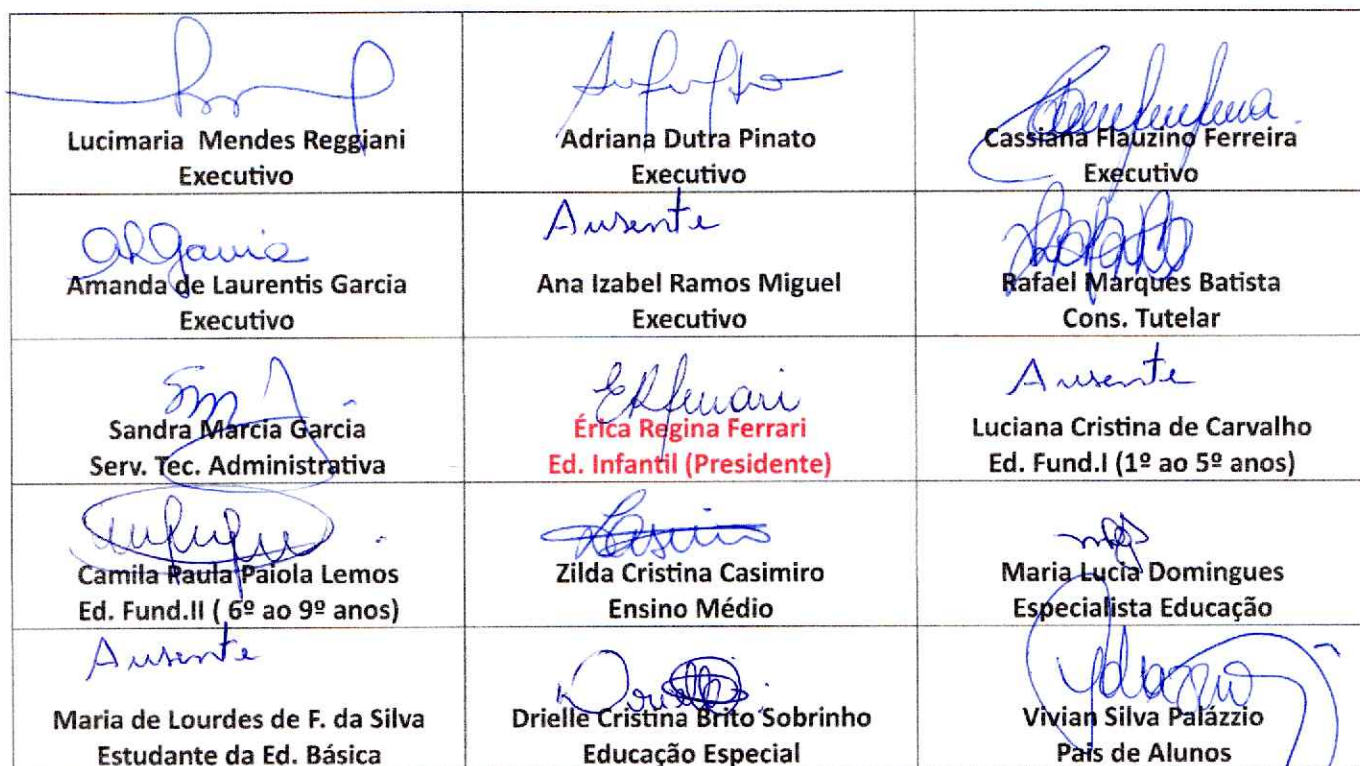 Lucimaria Mendes Reggiani
Executivo
Adriana Dutra Pinato
Executivo
Cassiana Flauzino Ferreira
Executivo
Amanda de Laurentis Garcia
Executivo
Ausente
Ana Izabel Ramos Miguel
Executivo
Rafael Marques Batista
Cons. Tutelar
Sandra Marcia Garcia
Serv. Tec. Administrativa
Érica Regina Ferrari
Ed. Infantil (Presidente)
Ausente
Luciana Cristina de Carvalho
Ed. Fund.I (1º ao 5º anos)
Camila Paula Paiola Lemos
Ed. Fund.II ( 6º ao 9º anos)
Zilda Cristina Casimiro
Ensino Médio
Maria Lucia Domingues
Especialista Educação
Ausente
Maria de Lourdes de F. da Silva
Estudante da Ed. Básica
Drielle Cristina Brito Sobrinho
Educação Especial
Vivian Silva Palázzio
Pais de Alunos